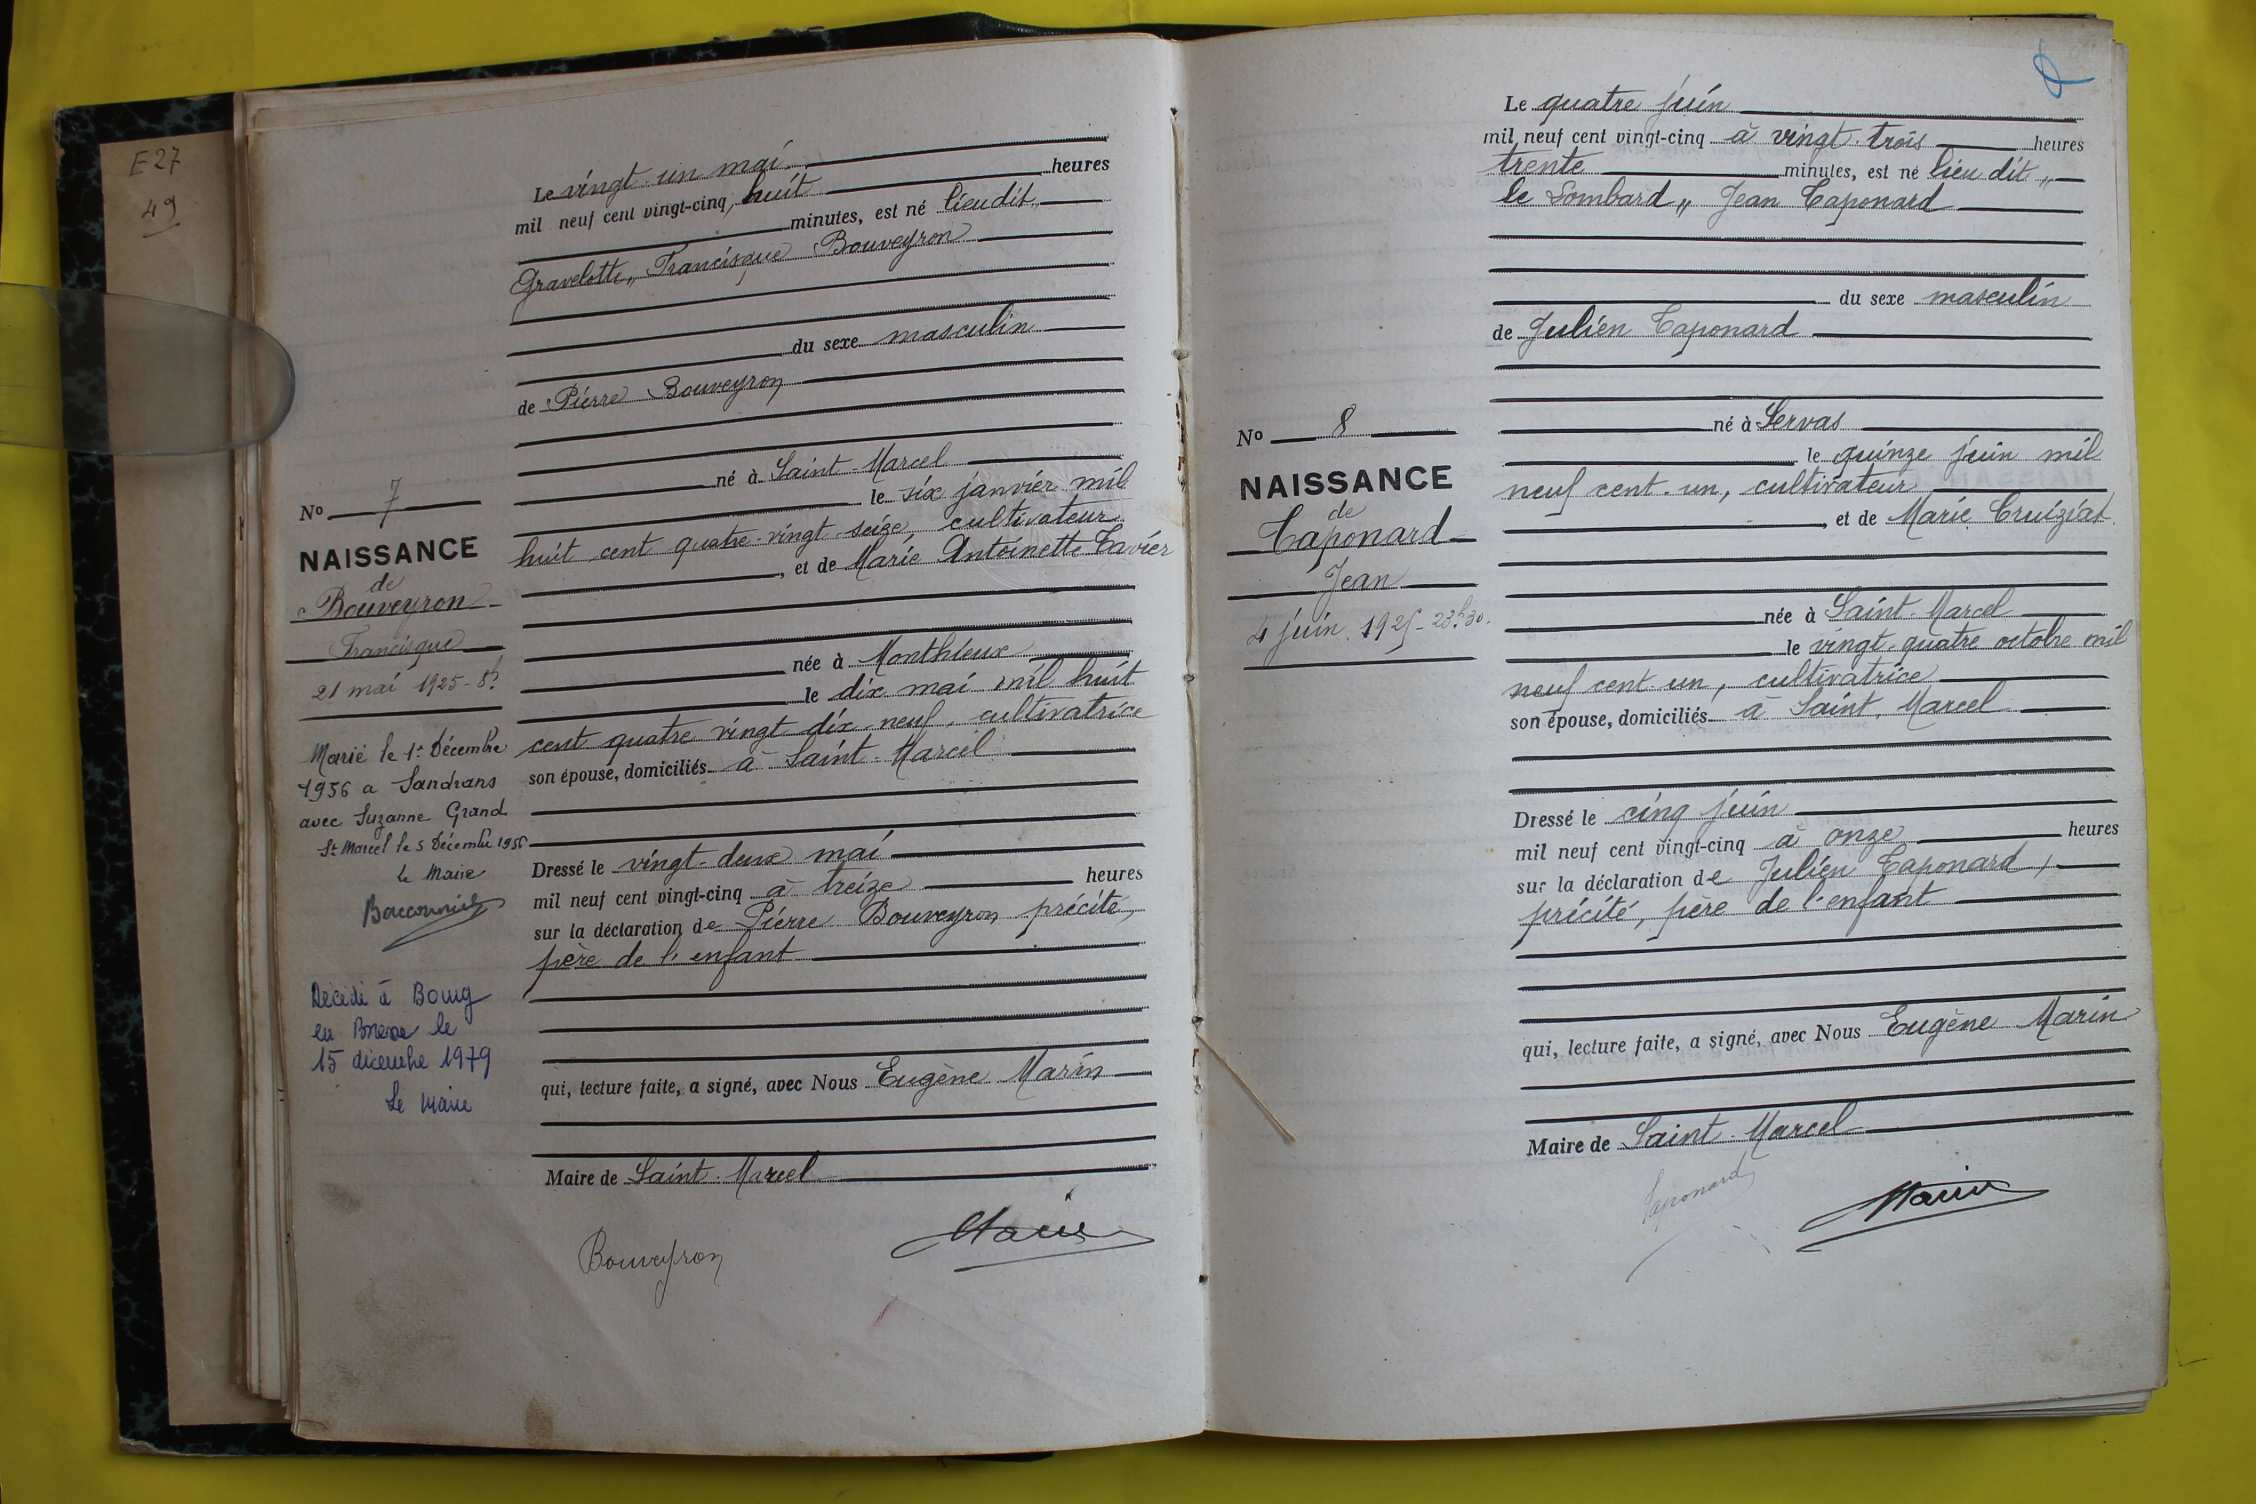 E27
49
Le vingt-un mai
mil neuf cent vingt-cinq, huit heures
minutes, est né lieudit „
Gravelotte „ Francisque Bouveyron
du sexe masculin
de Pierre Bouveyron
né à Saint-Marcel
le six janvier mil
huit cent quatre-vingt-seize, cultivateur
, et de Marie Antoinette Tavier
née à Monthieux
le dix mai mil huit
cent quatre vingt dix neuf, cultivatrice
son épouse, domiciliés à Saint-Marcel
Dressé le vingt-deux mai
mil neuf cent vingt-cinq à treize heures
sur la déclaration de Pierre Bouveyron précité,
père de l'enfant
qui, lecture faite, a signé, avec Nous Eugène Marin
Maire de Saint-Marcel
Bouveyron
Marin
No 7
NAISSANCE
de
Bouveyron
Francisque
21 mai 1925 - 8h
Marié le 1er Décembre
1956 a Sandrans
avec Suzanne Grand
St Marcel le 5 Décembre 1956
le Maire
Décédé à Bourg
en Bresse le
15 décembre 1979
Le Maire
8
Le quatre juin
mil neuf cent vingt-cinq à vingt-trois heures
trente minutes, est né lieu dit „
le Lombard „ Jean Taponard
du sexe masculin
de Julien Taponard
né à Servas
le quinze juin mil
neuf cent-un, cultivateur
, et de Marie Cruiziat
née à Saint-Marcel
le vingt-quatre octobre mil
neuf cent un, cultivatrice
son épouse, domiciliés à Saint-Marcel
Dressé le cinq juin
mil neuf cent vingt-cinq à onze heures
sur la déclaration de Julien Taponard,
précité, père de l'enfant
qui, lecture faite, a signé, avec Nous Eugène Marin
Maire de Saint-Marcel
Taponard
Marin
No 8
NAISSANCE
de
Taponard
Jean
4 juin 1925 - 23h30.